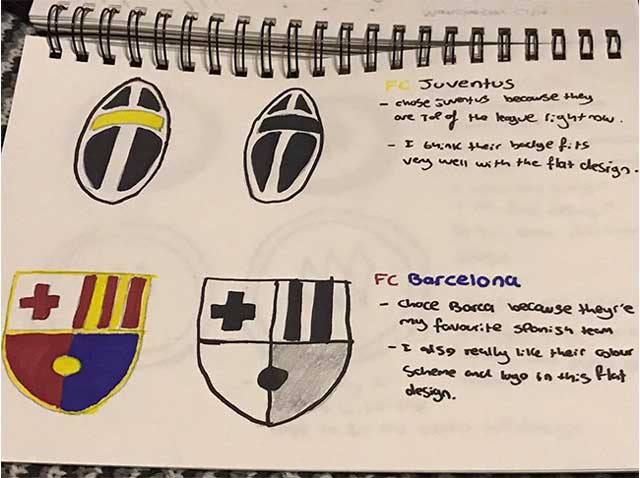 FC Juventus
- chose Juventus because they
are top of the league right now.
- I think their badge fits
very well with the flat design.
FC Barcelona
- choce Barca because they're
my favourite Spanish team
- I also really like their colour
scheme and logo in this flat
design.